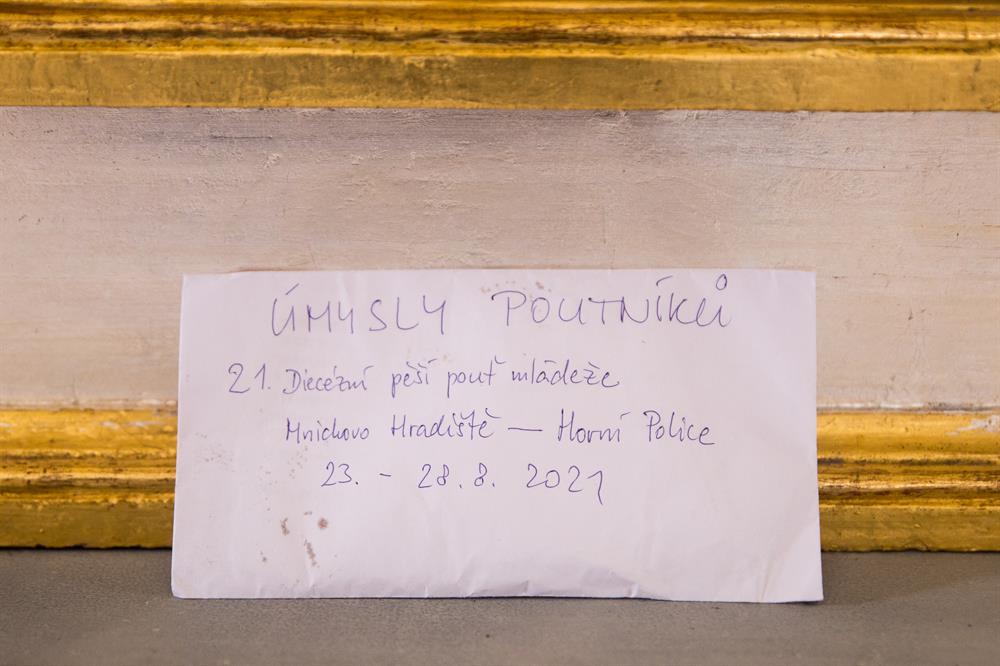 ÚMYSLY POUTNÍKŮ
21. Diecézní pěší pouť mládeže
Mnichovo Hradiště — Horní Police
23. - 28.8. 2021